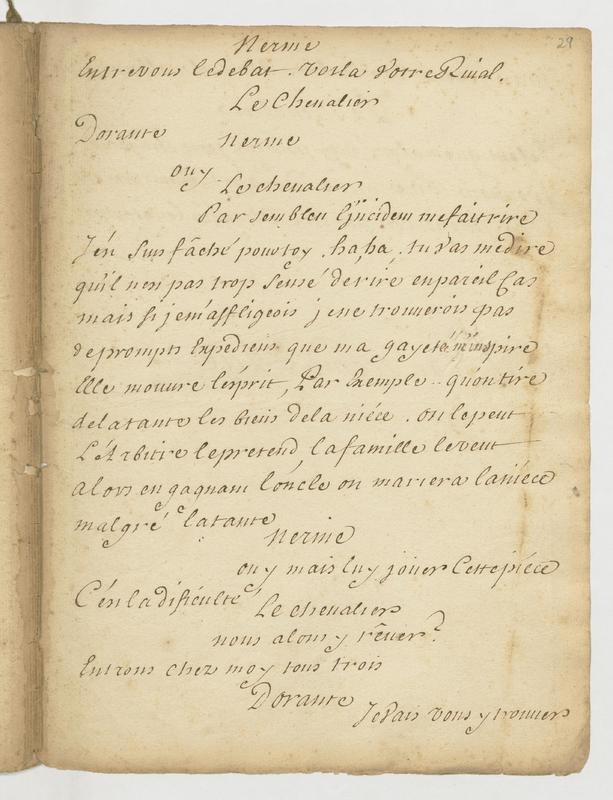 29
Nerine
Entrevous ledebat. voila votre Rival.
Le Chevalier
Dorante
Nerine
ouy
Le chevalier
Par sembleu L'jncident mefait rire
J'en suis fâché pour toy. ha, ha, tu vas me dire
qu'il n'est pas trop sensé de rire en pareil Cas
mais si je m'affligeois je ne trouverois pas
de prompts Expediens que ma gayeté m'inspire
Elle m'ouvre l'esprit, Par Exemple .. qu'on tire
de la tante les biens de la niéce. on le peut
L'Arbitre le pretend la famille le veut
alors en gagnant l'oncle on mariera la niéce
malgré la tante
Nerine
ouy mais luy joüer Cette piéce
C'est la dificulté
Le chevalier
nous alons y rêver?
Entrons chez moy tous trois
Dorante
Je vais vous y trouver